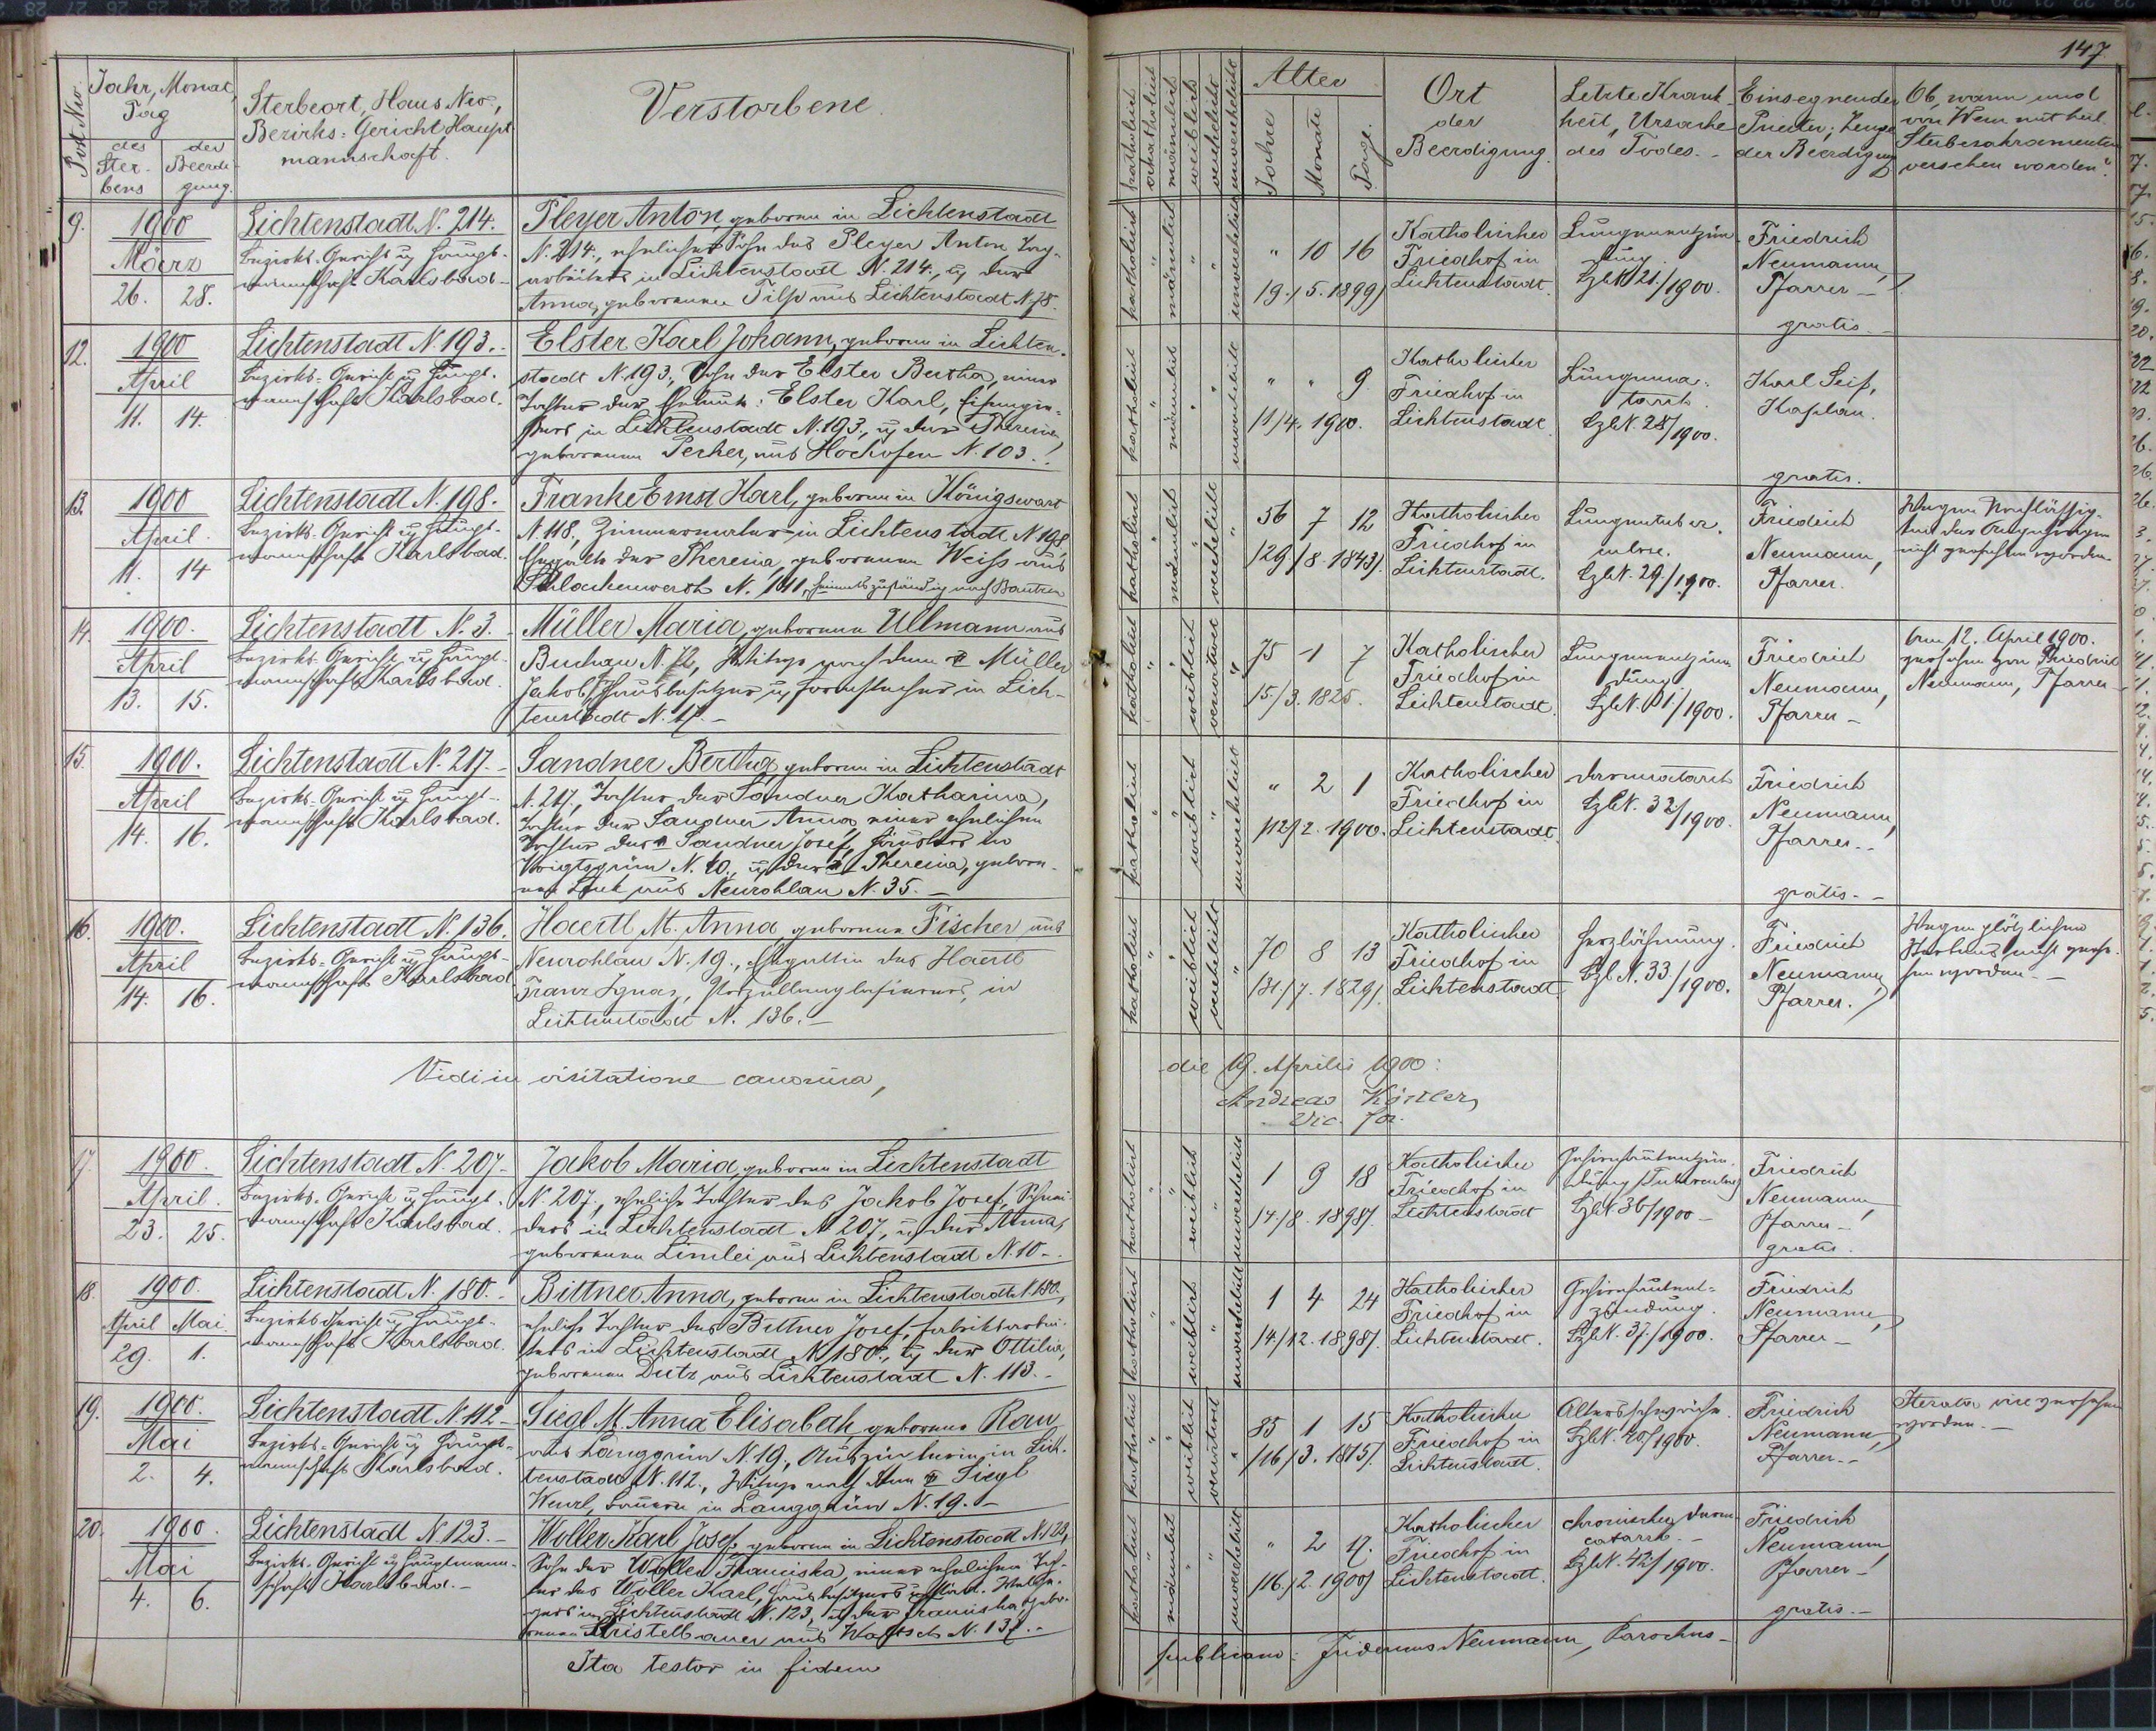 147.
Post Nro.
Jahr, Monat,
Tag
des Sterbens
der Beerdigung.
Sterbeort, Haus Nro.,
Bezirks-Gericht Haupt
mannschaft.
Verstorbene.
katholisch
akatholisch
männlich
weiblich
verehelicht
unverehelicht
Alter
Jahre
Monate
Tage.
Ort
der
Beerdigung.
Letzte Krank-
heit, Ursache
des Todes. -
Einsegnender
Priester; Zeuge
der Beerdigung
Ob, wann und
von Wem mit heil.
Sterbesakramenten
versehen worden?
9.
1900
März
26. 28.
Lichtenstadt N. 214.
Bezirks-Gericht u Haupt-
mannschaft Karlsbad -
Pleyer Anton, geboren in Lichtenstadt
N. 214., ehelicher Sohn des Pleyer Anton Tag-
arbeiters in Lichtenstadt N. 214., u der
Anna, geborenen Tilp aus Lichtenstadt N. 78.
katholisch
männlich
unverehelicht
" 10 16
19./5. 1899)
Katholischer
Friedhof in
Lichtenstadt.
Lungenentzün-
dung.
Tzl N. 21/1900.
Friedrich
Neumann,
Pfarrer -
gratis. -
12.
1900
April
11. 14.
Lichtenstadt N. 193. -
Bezirks-Gericht u Haupt-
mannschaft Karlsbad.
Elster Karl Johann, geboren in Lichten-
stadt N. 193., Sohn der Elster Bertha, einer
Tochter des Elster Karl,
in Lichtenstadt N. 193., u der Theresia,
geborenen Perker, aus Hochofen N. 103. -
katholisch
männlich
unverehelicht
" " 9
11/4. 1900.
Katholischer
Friedhof in
Lichtenstadt.
Lungenca-
tarrh.
Tzl N. 28/1900.
Karl Seif,
Kaplan.
gratis.
13.
1900
April
11. 14
Lichtenstadt N. 198.
Bezirks-Gericht u Haupt-
mannschaft Karlsbad.
Franke Ernst Karl, geboren in Königswart
N. 118., Zimmermaler in Lichtenstadt N 198,
Ehegatte der Theresia, geborenen Weiss aus
Schlackenwerth N. 111, heimatszuständig nach Bautzen
katholisch
männlich
verehelicht
56 7 12
(29/8. 1843).
Katholischer
Friedhof in
Lichtenstadt.
Lungentuber-
culose.
Tzl N. 29./1900.
Friedrich
Neumann,
Pfarrer.
Wegen Nachlässig-
keit der Angehörigen
nicht versehen worden.
14.
1900.
April
13. 15.
Lichtenstadt N. 3. -
Bezirks-Gericht u Haupt-
mannschaft Karlsbad.
Müller Maria, geborene Ullmann aus
Buchau N. 72, Witwe nach dem Müller
Jakob, Hausbesitzer u in Lich-
tenstadt N. 17. -
katholisch
weiblich
verwitwet
75 1 7
15./3. 1825.
Katholischer
Friedhof in
Lichtenstadt.
Lungenentzün-
dung
Tzl N. 31/1900.
Friedrich
Neumann,
Pfarrer -
Am 12. April 1900.
versehen von Friedrich
Neumann, Pfarrer
15.
1900.
April
14. 16.
Lichtenstadt N. 217. -
Bezirks-Gericht u Haupt-
mannschaft Karlsbad.
Sandner Bertha, geboren in Lichtenstadt
N. 217., Tochter der Sandner Katharina,
Tochter der Sandner Anna, einer ehelichen
Tochter des Sandner Josef, Häuslers in
Voigtsgrün N. 10., u der Theresia, gebore-
nen Link aus Neurohlau N. 35. -
katholisch
weiblich
unverehelicht
" 2 1
(12/2. 1900.
Katholischer
Friedhof in
Lichtenstadt.
Darmcatarrh
Tzl N. 32/1900.
Friedrich
Neumann,
Pfarrer. -
gratis. -
16.
1900.
April
14. 16.
Lichtenstadt N. 136.
Bezirks-Gericht u Haupt-
mannschaft Karlsbad
Haertl M. Anna geborene Fischer aus
Neurohlau N. 19., Ehegattin des Haertl
Franz Ignaz, in
Lichtenstadt N. 136. -
katholisch
weiblich
verehelicht
70 8 13
(31/7. 1829).
Katholischer
Friedhof in
Lichtenstadt.
Herzlähmung.
Tzl N. 33./1900.
Friedrich
Neumann,
Pfarrer.
Wegen plötzlichen
Sterbens nicht verse-
hen worden. -
Vidi in visitatione canonica,
die 19. Aprilis 1900:
Andreas Köstler,
Vic. for.
17.
1900.
April.
23. 25.
Lichtenstadt N. 207. -
Bezirks-Gericht u Haupt-
mannschaft Karlsbad.
Jakob Maria, geboren in Lichtenstadt
N. 207., eheliche Tochter des Jakob Josef, Schnei-
ders in Lichtenstadt N 207, u der Anna,
geborenen Limlei aus Lichtenstadt N. 10 -.
katholisch
weiblich
unverehelicht
1 9 18
14./8. 1898).
Katholischer
Friedhof in
Lichtenstadt
Gehirnhautentzün-
dung
Tzl N 36/1900 -
Friedrich
Neumann,
Pfarrer -
gratis.
18.
1900.
April Mai.
29. 1.
Lichtenstadt N. 180. -
Bezirks-Gericht u Haupt-
mannschaft Karlsbad.
Bittner Anna, geboren in Lichtenstadt N. 180.,
eheliche Tochter des Bittner Josef, Fabriksarbei-
ters in Lichtenstadt N. 180., u der Ottilia,
geborenen Dutz aus Lichtenstadt N. 113. -
katholisch
weiblich
unverehelicht
1 4 24
14./12. 1898).
Katholischer
Friedhof in
Lichtenstadt.
Gehirnhautent-
zündung.
Tzl N. 37./1900.
Friedrich
Neumann,
Pfarrer -
19.
1900.
Mai
2. 4.
Lichtenstadt N. 112 -
Bezirks-Gericht u Haupt-
mannschaft Karlsbad.
Siegl M. Anna Elisabeth, geborene Rau
aus Langgrün N. 19., Auszüglerin in Lich-
tenstadt N. 112., Witwe nach dem Siegl
Wenzl, Bauern in Langgrün N. 19. -
katholisch
weiblich
verwitwet
85 1 15
(16/3. 1815).
Katholischer
Friedhof in
Lichtenstadt.
Altersschwäche.
Tzl N. 40/1900.
Friedrich
Neumann,
Pfarrer. -
Iterata vice versehen
worden. -
20.
1900.
Mai
4. 6.
Lichtenstadt N. 123. -
Bezirks-Gericht u Hauptmann-
schaft Karlsbad. -
Woller Karl Josef, geboren in Lichtenstadt N. 123,
Sohn der Woller Franciska, einer ehelichen Toch-
ter des Woller Karl, Hausbesitzers u
in Lichtenstadt N. 123, u der Franciska, gebo-
renen Kristelbauer aus Waltsch N. 137. -
katholisch
männlich
unverehelicht
" 2 17.
(16./2. 1900)
Katholischer
Friedhof in
Lichtenstadt.
chronischer Darm-
catarrh -
Tzl N. 42/1900.
Friedrich
Neumann,
Pfarrer -
gratis. -
Ita testor in fidem
publicam: Fridericus Neumann, Parochus -